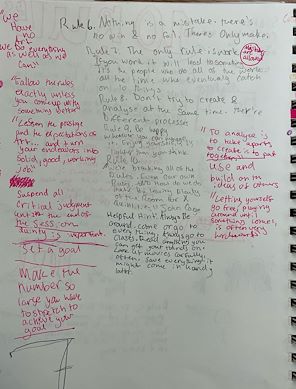 We
Have
no
Art
we Do everything
as well as we
can"
"Follow the rules
exactly unless
you come up with
something better
"Lessen the prestige
and the expectations of
Art... and turn
your endeavors into
Solid, good, working
job."
Suspend all
Critical Judgment
until the end of
the session
quantity is important
Set a goal
Make the
number so
large you have
to stretch to
achieve your
goal
Rule 6. Nothing is a mistake. there's
no win & no fail. There's Only make.
Rule 7. The only rule is work.
If you work it will lead to something
It's the people who do all of the work
all the time who eventually catch
on to things
Rule 8. Don't try to create &
analyse at the same time. they're
Different processes
Rule 9. Be happy
whenever you can manage
it. Enjoy yourself. It's
lighter than you think
Rule 10.
We're breaking all of the
rules. Even our own
rules. How do we do
that? By leaving plenty
of room for X
quantities // John Cage
Helpful hint: Always Be
around. come or go to
everything. Always go to
classes. Read anything you
can get your hands on.
Look at movies carefully,
often. Save everything it
might come in handy
later
"To analyse is
to take apart
to create is to put
together"
use and
build on the
ideas of others
"Letting yourself
go free, playing
around until
something comes,
is often very